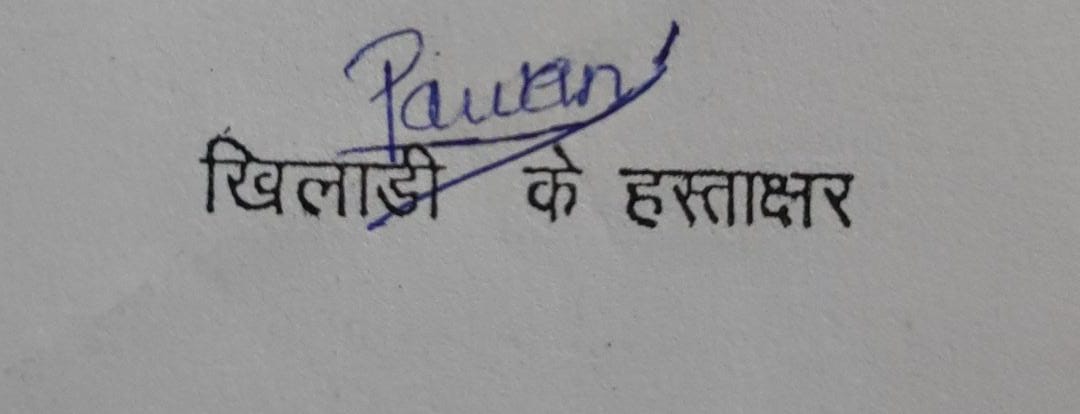 Pawan
खिलाड़ी के हस्ताक्षर